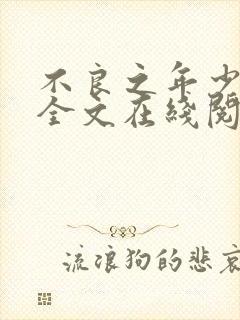 不良之年少
全文在线阅
流浪狗的悲哀